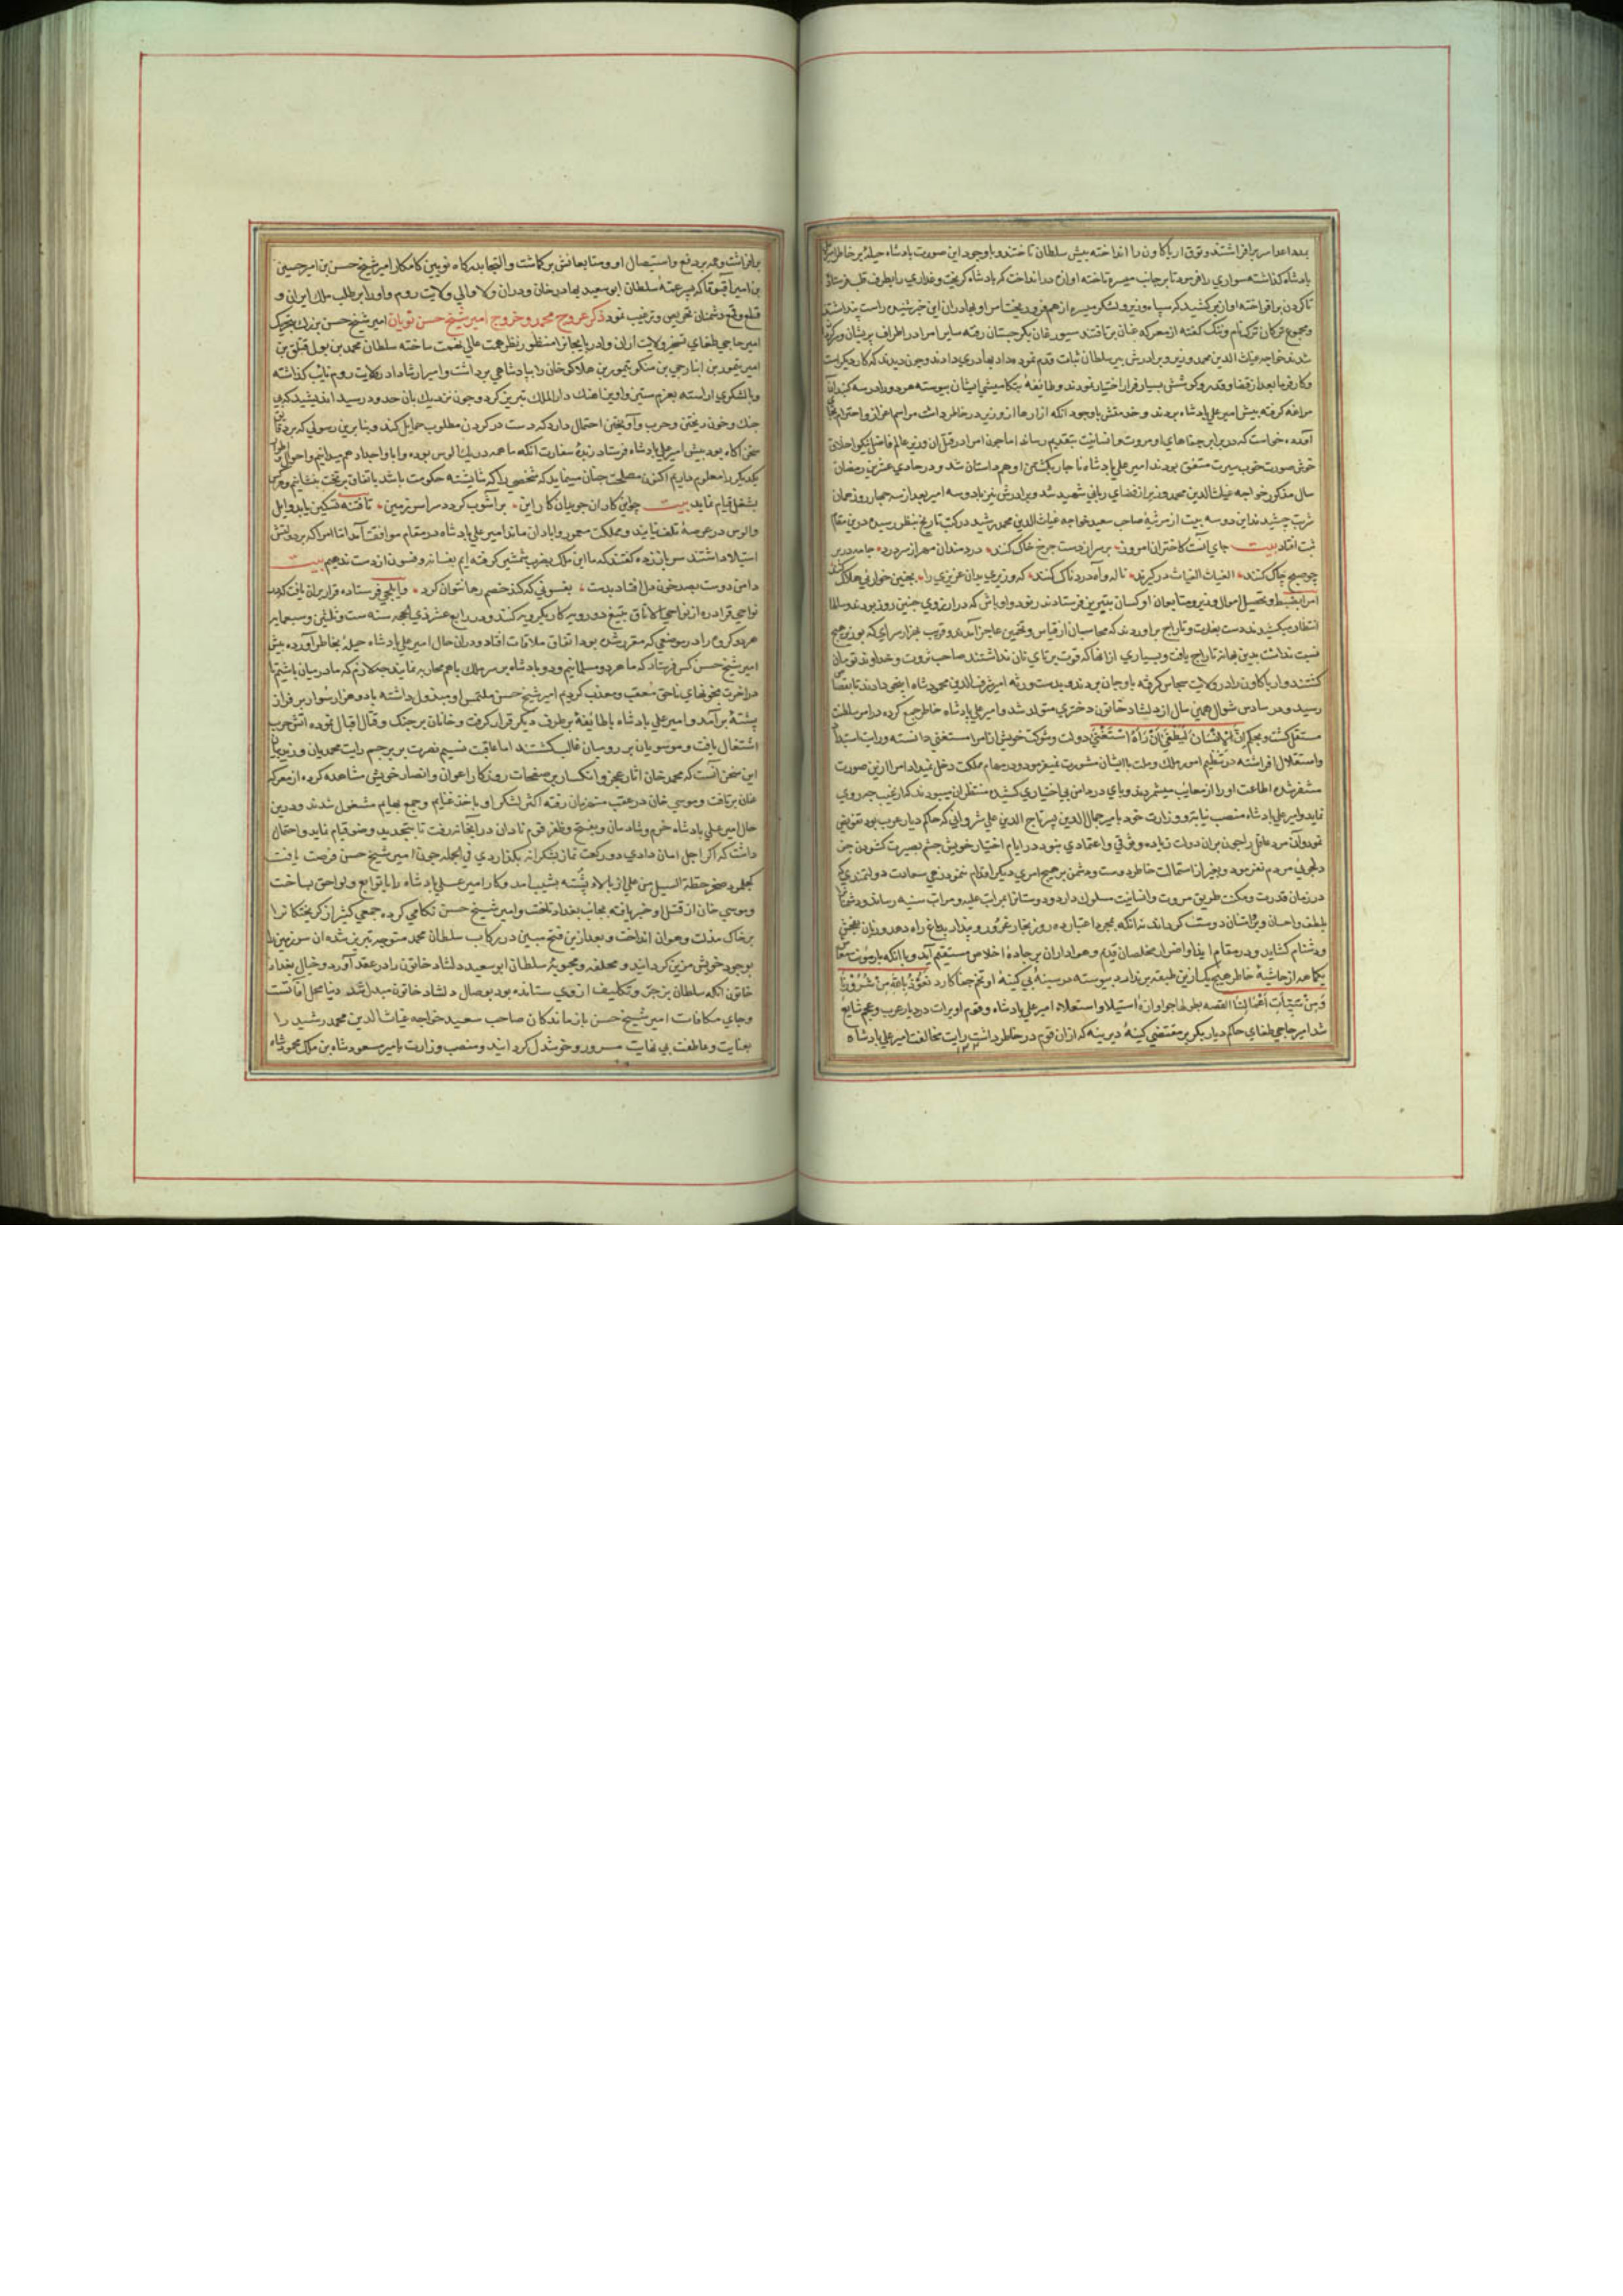 پادشاه گذاشته سواری را فرمود تا بر جانب میسره تاخته اوازه در انداخت که پادشاه گریخت و
شدند خواجه غیاث الدین محمد وزیر و برادرش پیر سلطان ثبات قدم نموده داد بهادری دادند و چون دیدند که کار دیگر است
و کار فرما بعد از قضا و قدر و کوشش بسیار فرار اختیار نمودند و طایفهٔ
مراغه گرفته پیش امیر علی پادشاه بردند و خدمتش باوجود آنکه آزارها از وزیر در خاطر داشت مراسم اعزاز و احترام بجا
آورده خواست که در برابر جفاهای او مروت و انسانیت بتقدیم رساند اما چون امرا در قتل آن وزیر عالم فاضل نیکو اخلاق
خوش صورت خوب سیرت متفق بودند امیر علی پادشاه ناچار بکشتن او همداستان شد و در حادی عشرین رمضان
سال مذکور خواجه غیاث الدین محمد وزیر از قضای ربانی شهید شد و برادرش نیز با دو سه امیر بعد از سه چهار روز همان
شربت چشیدند این دو سه بیت از مرثیهٔ صاحب سعید خواجه غیاث الدین محمد رشید در کتب تاریخ بنظر رسیده درین مقام
ثبت افتاد بیت جای آنست کاختران امروز بر سر از دست چرخ خاک کنند دردمندان مهر از سر درد جامه در بر
چو صبح چاک کنند الغیاث الغیاث در گیرند ناله و آه دردناک کنند که وزیری بدان عزیزی را بچنین خواریی هلاک کنند
امرا بضبط و تحصیل اموال وزیر و متابعان او کسان بتبریز فرستادند رنود و اوباش که در آرزوی چنین روز بودند و سالها
انتظار میکشیدند دست بغارت و تاراج براوردند که محاسبان از قیاس و تخمین عاجز آمدند و قریب بهزار سرای که بوزیر هیچ
نسبت نداشت بدین بهانه تاراج یافت و بسیاری از آنها که قوت بر تای نان نداشتند صاحب ثروت و خداوند تومان
کشتند و ارپا کاون را در ولایت سجاس گرفته باوجان بردند و بدست ورثه امیر شرف الدین محمود شاه اینجو دادند تا بقصاص
رسید و در سادس شوال همین سال از دلشاد خاتون دختری متولد شد و امیر علی پادشاه خاطر جمع کرده در امر سلطنت
مستقل گشت و بحکم انّ الانسان لیطغی ان رآه استغنی دولت و شوکت خویش از امرا مستغنی دانسته و رایت استبداد
و استقلال افراشته در تنظیم امور ملک و ملت با ایشان مشورت نمیفرمود و در مهام مملکت دخل نمیداد امرا ازین صورت
متنفر شده اطاعت او را از معایب میشمردند و پای در دامن بی اختیاری کشیده منتظر آن میبودند که از غیب چه روی
نماید و امیر علی پادشاه منصب نیابت و وزارت خود بامیر جمال الدین پسر تاج الدین علی شروانی که حاکم دیار عرب بود تفویض
نمود و آن مرد عاقل را چون بران دولت زیاده وثوقی و اعتمادی نبود در ایام اختیار خویش چشم بصیرت گشوده جز
دلجوئی مردم نفرمود و بغیر از استمالت خاطر دوست و دشمن بر هیچ امری دیگر اقدام ننمود زهی سعادت دولتمندی که
در زمان قدرت و مکنت طریق مروت و انسانیت مسلوک دارد و دوستانرا بمراتب علیه و مراتب سنیه رساند و دشمنانرا
بلطف و احسان و بر و امتنان دوست گرداند نه آنکه بمجرد اعتبار ده روز بخار غرور و پندار بدماغ راه دهد و زبان بفحش
و دشنام گشاید و در مقام ایذا و اضرار مخلصان قدیم و هواداران بر جادهٔ اخلاص مستقیم آید
یکماهه از حاشیهٔ خاطر هیچ یک ازین طبقه بر ندارد پیوسته در سینهٔ بی کینهٔ او تخم جفا کارد نعوذ بالله من شرور
و من سیئات اعمالنا القصه بطولها چو آوازهٔ استیلا و استعلاء امیر علی پادشاه و قوم اویرات در دیار عرب و عجم شایع
شد امیر حاجی طغای حاکم دیار بکر بر مقتضی کینهٔ دیرینه که از آن قوم در خاطر داشت رایت مخالفت امیر علی پادشاه
برافراشت و همه بر دفع و استیصال او و متابعانش برگماشت و التجا بدرگاه نویین کامکار امیر شیخ حسن بن امیر حسین
بن امیر آقبوقا که پسر عمهٔ سلطان ابو سعید بهادر خان و دران ولا والی ولایت روم و او را بر طلب ملک ایران و
قلع و قمع دشمنان تحریص و ترغیب نمود ذکر عروج محمد و خروج امیر شیخ حسن نویان امیر شیخ حسن بزرگ بتحریک
امیر حاجی طغای تسخیر ولایت اران و آذربایجانرا منظور نظر همت عالی نهمت ساخته سلطان محمد بن یول قتلق بن
امیر تیمور بن انبارجی بن منکو تیمور بن هلاکو خان را بپادشاهی برداشت و امیر ارتنا را در ولایت روم نایب گذاشته
و با لشکری آراسته بعزم ستیز و آویز آهنگ دار الملک تبریز کرد و چون نزدیک بان حدود رسید اندیشید که
جنگ و خون ریختن و حرب و آویختن احتمال دارد که دست در گردن مطلوب حمایل کند و بنابرین رسولی که بر دقایق
سخن آگاه بود پیش امیر علی پادشاه فرستاد زبدهٔ سفارت آنکه ما همه درین الوس بوده و آبا و اجداد هم میدانیم و احوال
یکدیگر را معلوم داریم اکنون مصلحت چنان مینماید که شخصی را که شایسته حکومت باشد باتفاق بر تخت بنشانیم و هر کس
بشغل قیام نماید بیت
و الوس در عرصهٔ تلف نیایند و مملکت معمور و آبادان ماند امیر علی پادشاه در مقام موافقت آمد اما امرا که بر دولتش
استیلا داشتند سر باز زده گفتند که ما این ملک بضرب شمشیر گرفته ایم بفسانه و فسون از دست ندهیم بیت
دامن دوست بصد خون دل افتاد بدست بفسونی که کند خصم رها نتوان کرد و ایلچی فرستاده قرار بران یافت که در
نواحی قرادره از نواحی الاتاق بتیغ دورویه کار یکرویه کنند و در رابع عشر ذی الحجه سنه ست و ثلثین و سبعمایه
هر دو گروه را در موضعی که مقرر شده بود اتفاق ملاقات افتاد و دران حال امیر علی پادشاه حیلهٔ بخاطر آورده پیش
امیر شیخ حسن کس فرستاد که ما هر دو مسلمانیم و دو پادشاه بر سر ملک باهم محاربه نمایند چه لازم که ما در میان باشیم تا
در آخرت بخونهای ناحق معاقب و معذب گردیم امیر شیخ حسن ملتمس او مبذول داشته با دو هزار سوار بر فراز
پشتهٔ بر آمد و امیر علی پادشاه با طایفهٔ بر طرف دیگر قرار گرفت و خانان بر جنگ و قتال اقبال نموده آتش حرب
اشتعال یافت
این سخن آنست که محمد خان آثار عجز و انکسار بر صفحات روزگار اعوان و انصار خویش مشاهده کرده از معرکه
عنان برتافت و موسی خان در عقب منهزمان رفته اکثر لشکر او باخذ غنایم و جمع بهایم مشغول شدند و درین
حال امیر علی پادشاه خرم و شادمان و بفتح و ظفر قوم نادان در آنجا نه رفت تا بتجدید وضو قیام نماید و احتمال
داشت که اگر اجل امان دادی دو رکعت نماز شکرانه بگذاردی فی الجمله چون امیر شیخ حسن فرصت یافت
کجلمود صخر حطه السیل من عل از بالاء پشته بشیب آمد و کار امیر علی پادشاه را با توابع و لواحق بساخت
و موسی خان از قتل او خبر یافته بجانب بغداد تاخت و امیر شیخ حسن تکامیشی کرده جمعی کثیر از گریختگانرا
بر خاک مذلت و هوان انداخت و بعد ازین فتح مبین در رکاب سلطان محمد متوجه تبریز شده آن سرزمین را
بوجود خویش مزین گردانید و مخلفه و محبوبهٔ سلطان ابو سعید دلشاد خاتون را در عقد آورد و خیال بغداد
خاتون آنکه سلطان بزجر و تکلیف از وی ستانده بود بوصال دلشاد خاتون مبدل شد دنیا محل آفاتست
و جای مکافات امیر شیخ حسن بازماندگان صاحب سعید خواجه غیاث الدین محمد رشید را
بعنایت و عاطفت بی نهایت مسرور و خوشدل گردانید و منصب وزارت بامیر مسعود شاه بن ملک محمود شاه